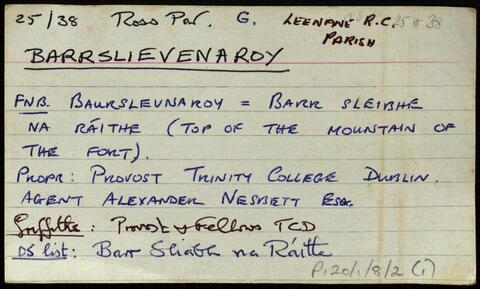 25/38 Ross Par. G. LEENANE R.C. 25 & 38
PARISH
BARRSLIEVENAROY
FNB. BAURSLEVNAROY = BARR SLEIBHE
NA RÁITHE (TOP OF THE MOUNTAIN OF
THE FORT).
PROPR: PROVOST TRINITY COLLEGE DUBLIN.
AGENT ALEXANDER NESBETT ESQR.
Griffiths: Provost & Fellows TCD
OS list: Barr Shliabh na Ráithe
P120/1/8/2 (1)